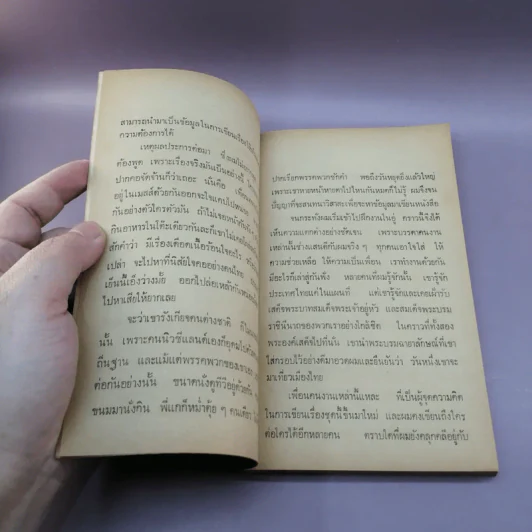 สามารถนำมาเป็นข้อมูลในการเขียนเรื่อง
ความต้องการได้
เหตุผลประการต่อมา
ต้องพูด เพราะเรื่องจริงมันเป็นอย่างนี้
ปากคอจัดจ้านก็ว่าเถอะ นั่นคือ
อยู่ในเมสส์ด้วยกันออกจะใจแคบไปสักหน่อย
กันอย่างตัวใครตัวมัน ถ้าไม่เจอหน้ากัน
กินอาหารในโต๊ะเดียวกันละก็เขาไม่
สักคำว่า มีเรื่องเดือดเนื้อร้อนใจอะไร
เปล่า จะไปหาที่นิสัยใจคออย่างคนไทย
เย็นนี้เอ็งว่างมั้ย ออกไปถ่อยเหล้า
ไปหาเสียให้ยากเลย
จะว่าเขารังเกียจคนต่างชาติ ก็
นั้น เพราะคนนิวซีแลนด์เองก็ยุคใคร
ถิ่นฐาน และแม้แต่พรรคพวกของเขาเอง
ต่อกันอย่างนั้น ขนาดนั่งดูทีวีอยู่ด้วยกัน
ขนมมานั่งกิน พี่แกก็หม่ำตุ้ย ๆ คนเดียว
ปากเรียกพรรคพวกซักคำ พอถึงวันหยุดยิ่งแล้วใหญ่
เพราะเขาหายหน้าหายตาไปไหนกันหมดก็ไม่รู้ ผมจึงจน
ปัญญาที่จะสนทนาวิสาสะเพื่อจะหาข้อมูลมาเขียนหนังสือ
จนกระทั่งผมเริ่มเข้าไปฝึกงานในอู่ คราวนี้จึงได้
เห็นความแตกต่างอย่างชัดเจน เพราะบรรดาคนงาน
เหล่านั้นช่างแสนดีกับผมจริง ๆ ทุกคนเอาใจใส่ ให้
ความช่วยเหลือ ให้ความเป็นเพื่อน เราทำงานด้วยกัน
มีอะไรก็เล่าสู่กันฟัง หลายคนที่ผมรู้จักนั้น เขารู้จัก
ประเทศไทยแค่ในแผนที่ แต่เขารู้จักและเคยเฝ้ารับ
เสด็จพระบาทสมเด็จพระเจ้าอยู่หัว และสมเด็จพระบรม
ราชินีนาถของพวกเราอย่างใกล้ชิด ในคราวที่ทั้งสอง
พระองค์เสด็จไปที่นั่น เขานำพระบรมฉายาลักษณ์ที่เขา
ใส่กรอบไว้อย่างดีมาอวดผมและยืนยันว่า วันหนึ่งเขาจะ
มาเที่ยวเมืองไทย
เพื่อนคนงานเหล่านี้แหละ ที่เป็นผู้จุดความคิด
ในการเขียนเรื่องชุดนี้ขึ้นมาใหม่ และผมคงเขียนถึงใคร
ต่อใครได้อีกหลายคน ตราบใดที่ผมยังคลุกคลีอยู่กับ